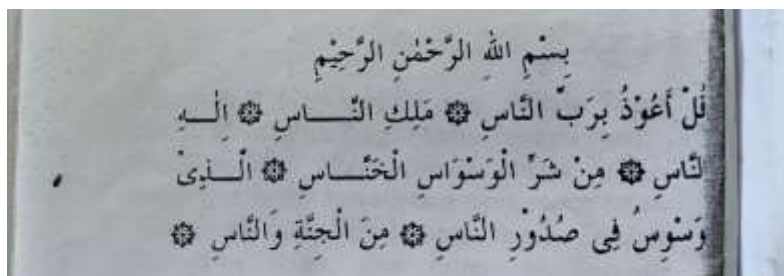 بِسْمِ اللهِ الرَّحْمٰنِ الرَّحِيْمِ
قُلْ أَعُوْذُ بِرَبِّ النَّاسِ ۞ مَلِكِ النَّـــاسِ ۞ اِلٰـــهِ
النَّاسِ ۞ مِنْ شَرِّ الْوَسْوَاسِ الْخَنَّـــاسِ ۞ الَّـــذِىْ
وَسْوِسُ فِى صُدُوْرِ النَّاسِ ۞ مِنَ الْجِنَّةِ وَالنَّاسِ ۞